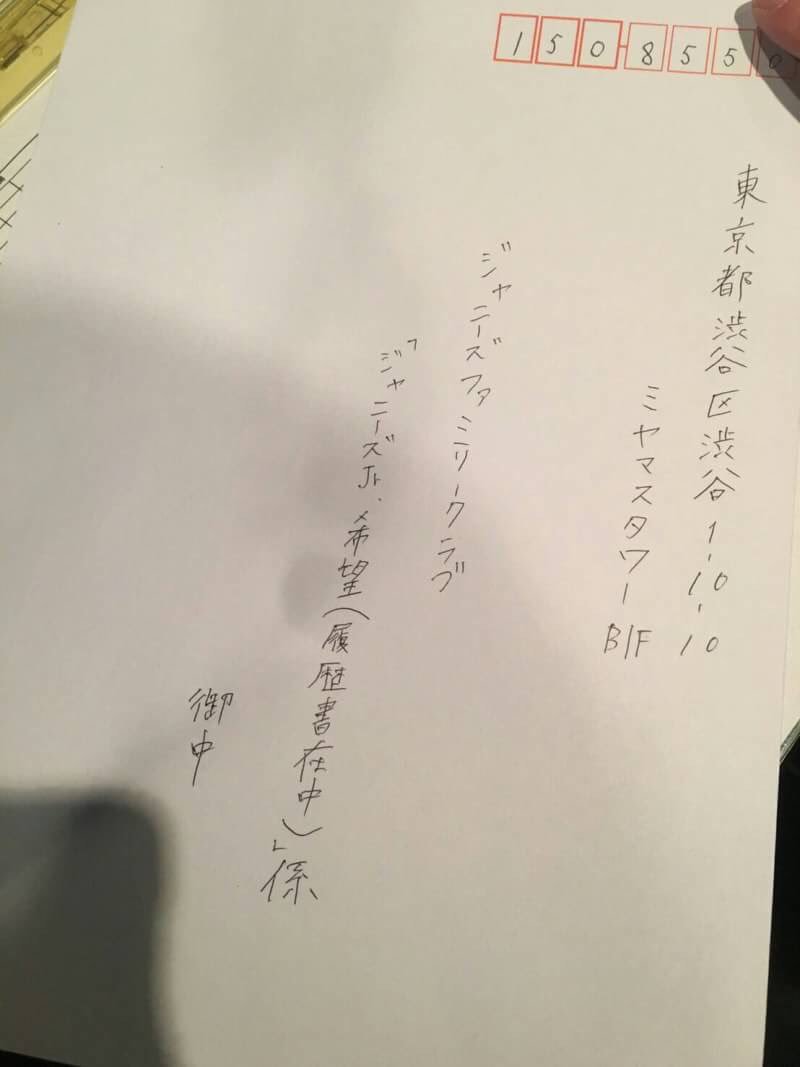 1508550
東京都渋谷区渋谷1-10-10
ミヤマスタワーB1F
ジャニーズファミリークラブ
「ジャニーズJr.希望(履歴書在中)」係
御中